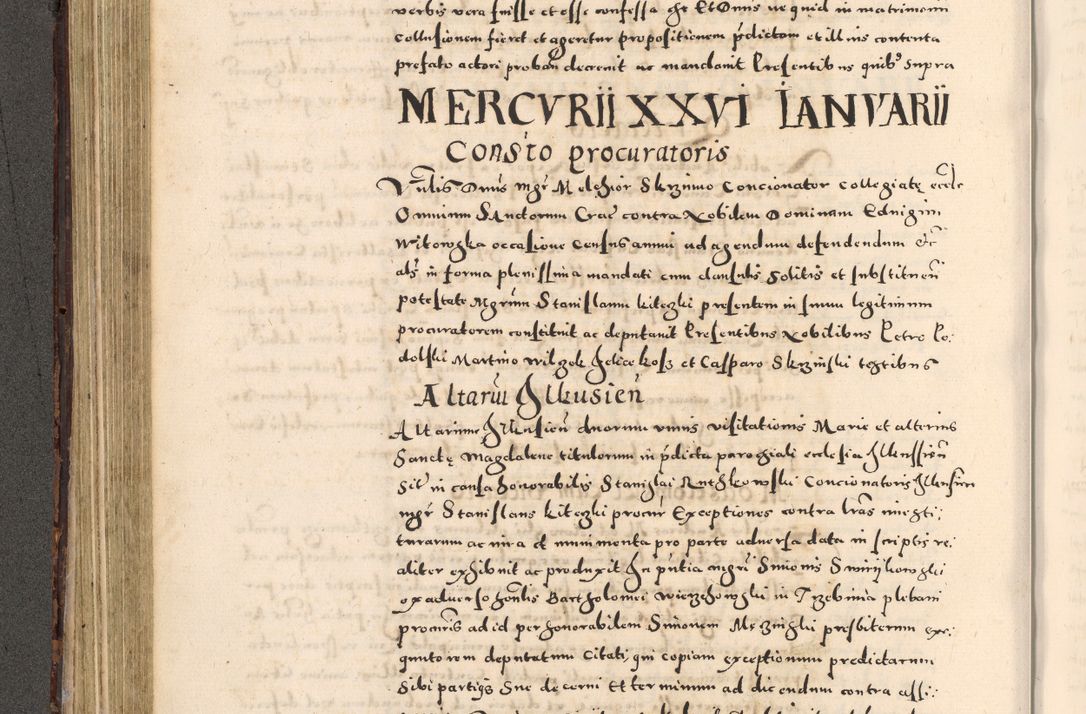 verbis vera fuisse et esse confessa est Et Dnus ne quid in matrimonii
Collusionem fieret et ageretur propositionem pdictam et illius contenta
prefato actori proban decrevit ac mandavit Presentibus quibus supra
MERCVRII XXVI IANVARII
Consto procuratoris
Vnlis Dnus mgr Melchior Skrzinno Concionator Collegiatę eccle
Omnium Sanctorum Crac contra Nobilem Dominam Edvigim
Witowska occasione Census annui ad agendum defendendum etc
als in forma plenissima mandati cum clausulis solitis et substituen
potestate Mgrum Stanislaum kiteczki presentem in suum legitimum
procuratorem constituit ac deputavit Presentibus Nobilibus Petro Po-
dolski Martino Wilczek Felice koss et Casparo Skrzinski testibus
Altariu Ilkusien
Altarium Ilkusien duorum unius visitationis Marie et alterius
Sanctę Magdalene titulorum in pdicta parochiali ecclesia Ilkussien
Sit in causa honorabilis Stanislai Concionatoris Ilkusien
mgr Stanislaus kiteczki procur Exceptiones contra lras investi:
turarum ac iura et munimenta pro parte adversa data in scriptis re:
aliter exhibuit ac produxit In pntia mgri Simonis
ex adverso honlis Bartholomei in Trzebinia plebani
procuris ad id per honorabilem Simonem presbiterum exe:
quutorem deputatum Citati, qui copiam exceptionum predictarum
Sibi partiqs Sue decerni Et terminum ad dicendum contra assi: